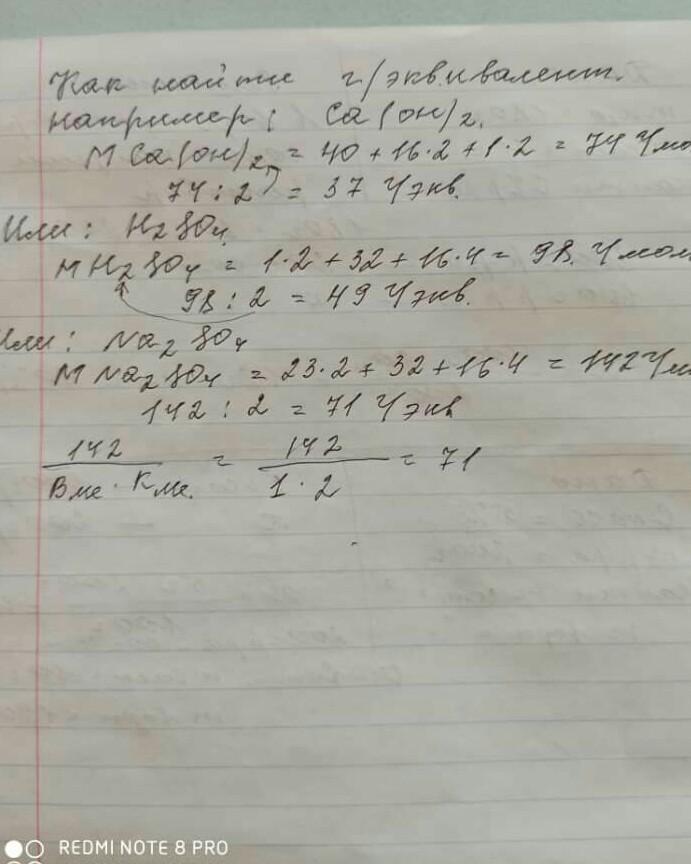 Как найти г/эквивалент.
например: Ca(OH)2.
M Ca(OH)2 = 40 + 16·2 + 1·2 = 74 г/мо
74 : 2 = 37 г/экв.
Или: H2SO4.
M H2SO4 = 1·2 + 32 + 16·4 = 98. г/мол
98 : 2 = 49 г/экв.
Или: Na2SO4
M Na2SO4 = 23·2 + 32 + 16·4 = 142 г/м
142 : 2 = 71 г/экв
142 / Вме · Kме. = 142 / 1·2 = 71
REDMI NOTE 8 PRO